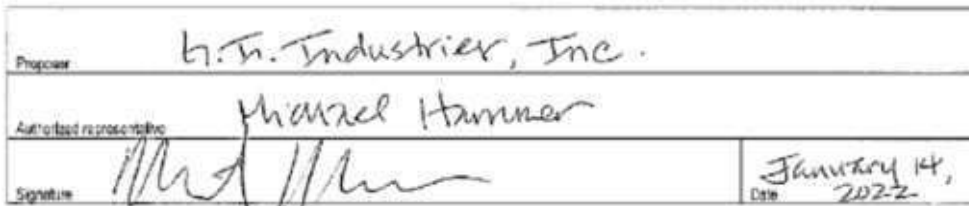 Proposer h.n. Industries, Inc.
Authorized representative Michael Hammer
Signature
January 14,
Date 2022